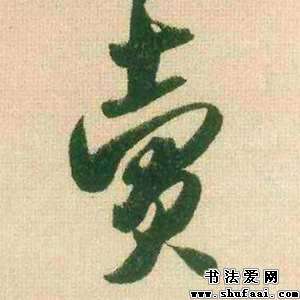 賣
书法爱网
www.shufaai.com